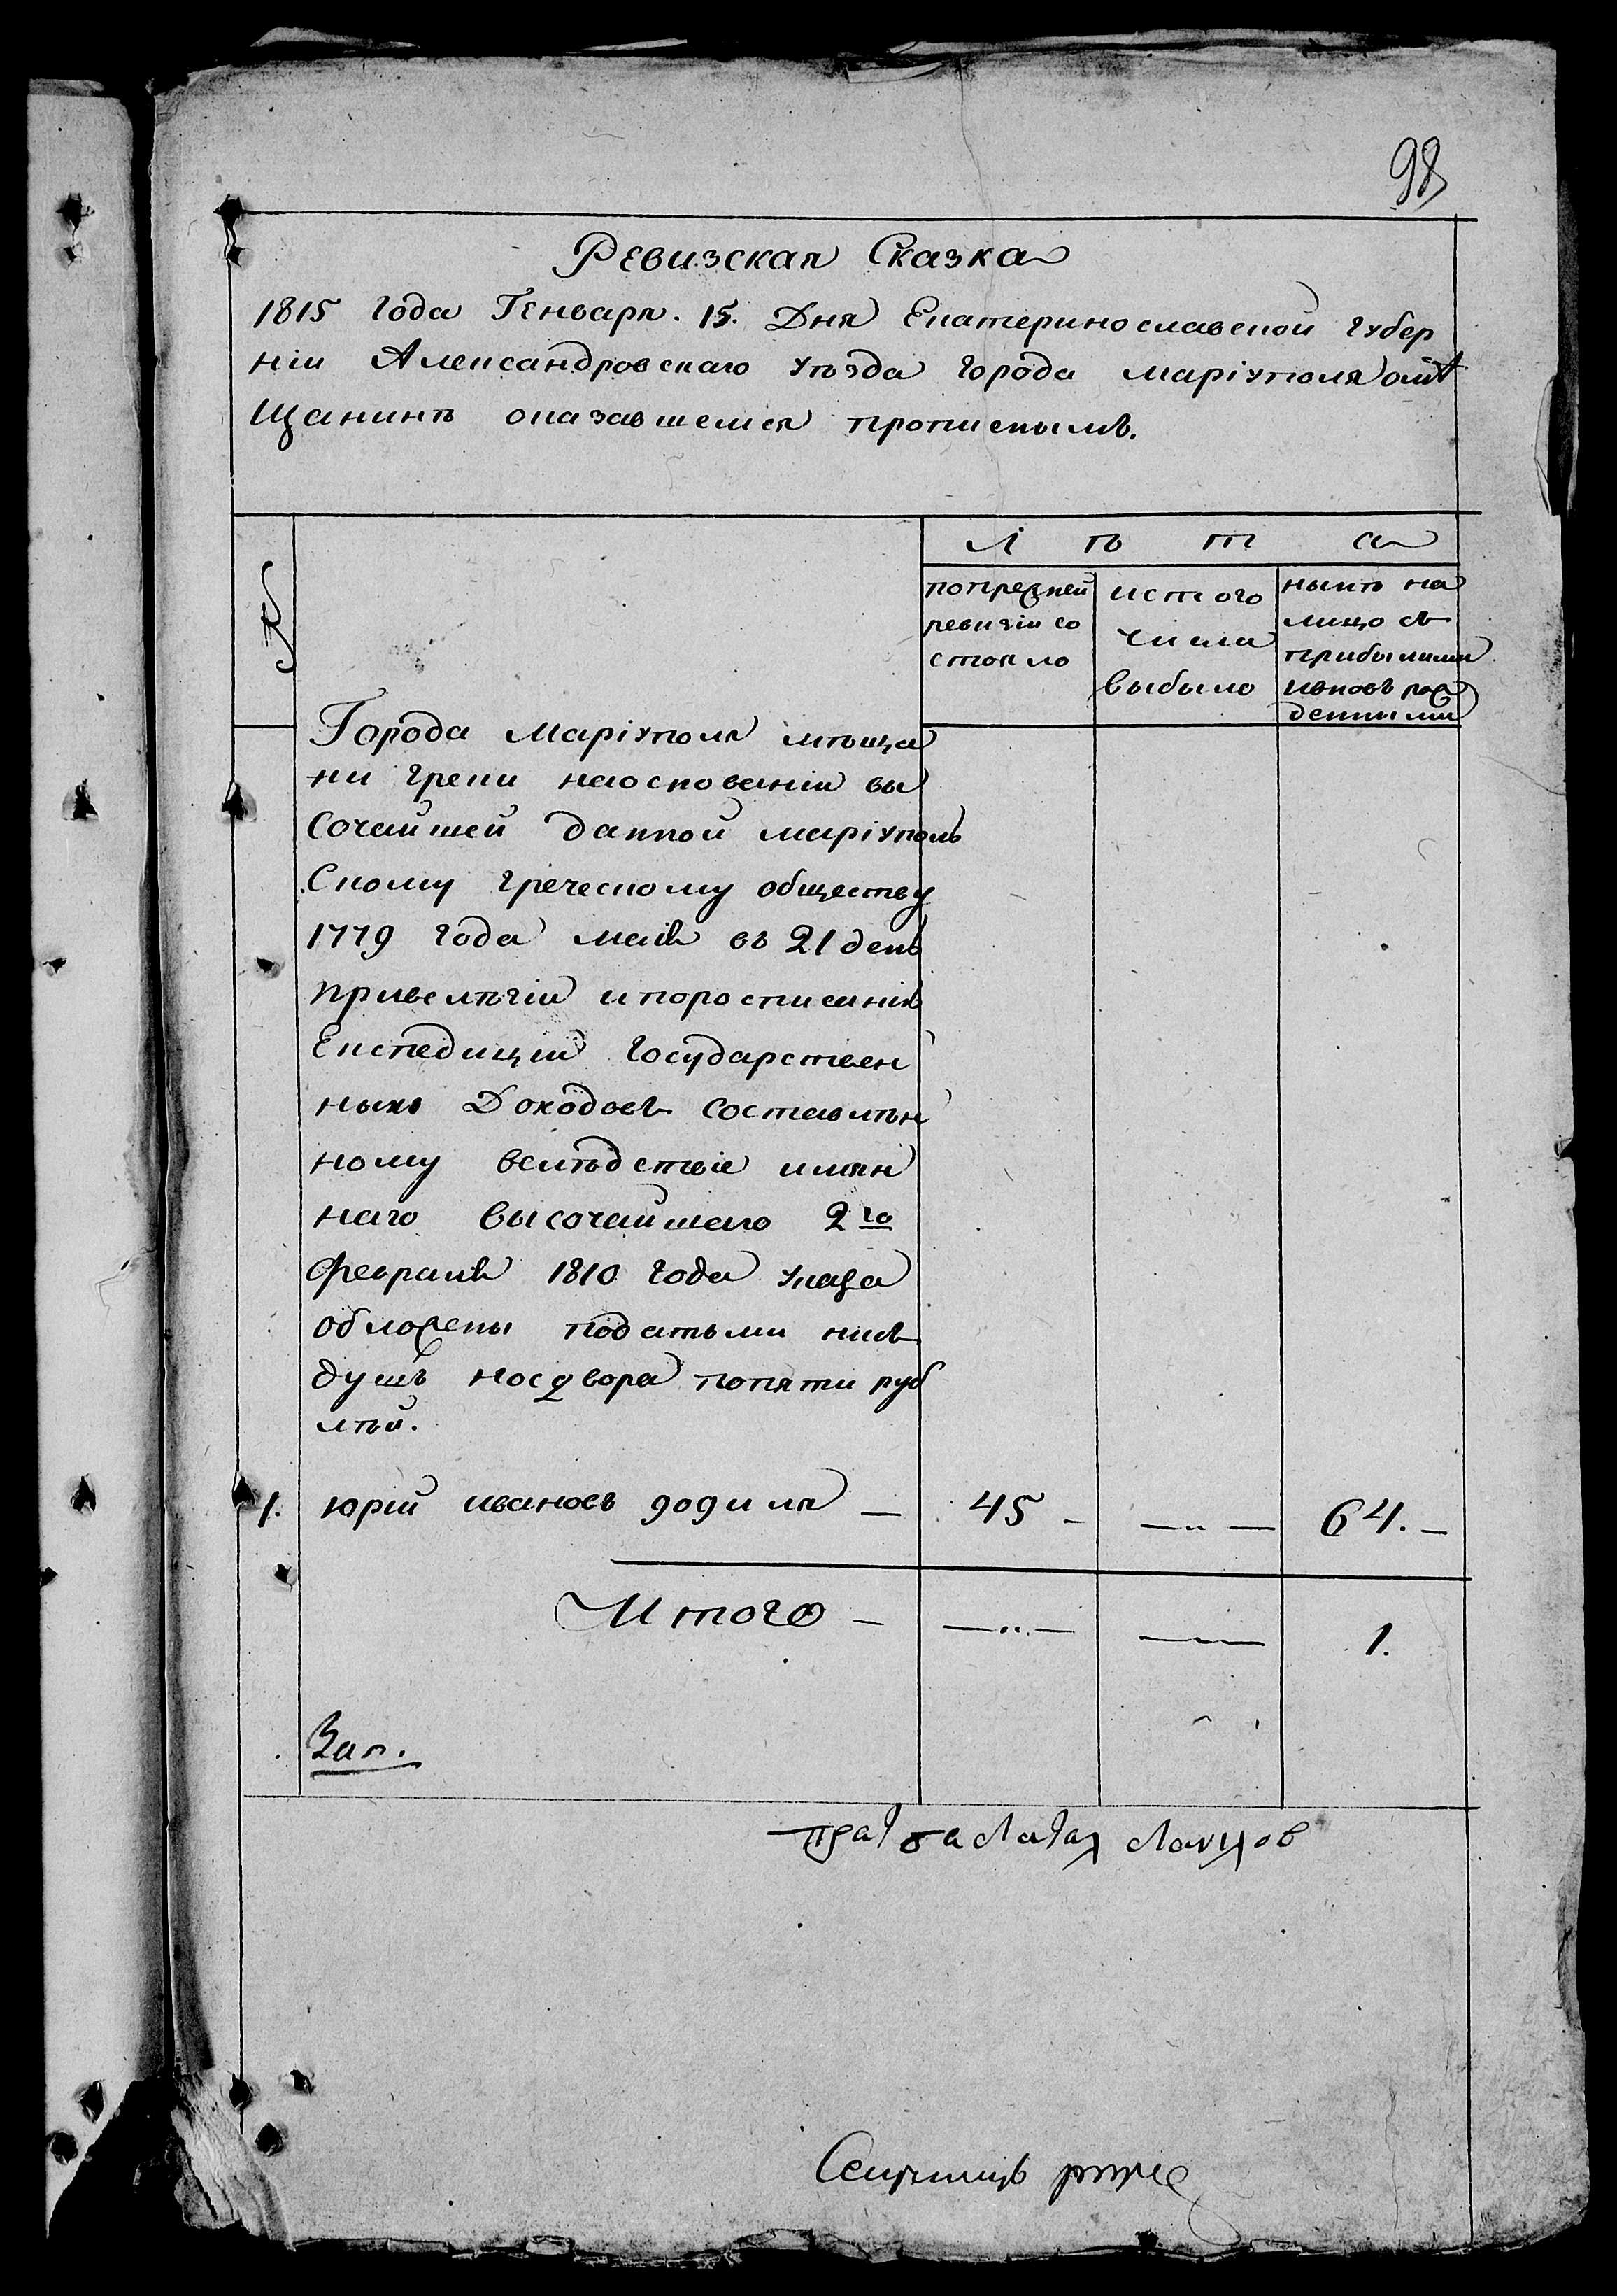 98
Ревизская Сказка
1815 года Генваря. 15. Дня Екатеринославской губер
нiи Александровскаго уѣзда города марiуполя омѣ
щанинѣ оказавшемся прописнымъ.
Л ѣ т а
№
попрежней
ревизiи со
стояло
истого
числа
выбыло
нынѣ на
лицо съ
прибылыми
ивновь рож
денными
Города Марiуполя мѣща
ни греки наоснованiи вы
сочайшей данной марiуполь
скому греческому обществу
1779 года маiя въ 21 день
привелѣгiи ипоросписанiю
Експедицiи государствен
ныхъ Доходовъ составлѣн
ному вслѣдствiе имян
наго высочайшаго 2го
февраля 1810 года указа
обложены податьми нисъ
душъ носдвора попяти руб
лѣй.
1. юрiй ивановъ додиля — 45 — —„— 64. —
Итого — —„— — 1.